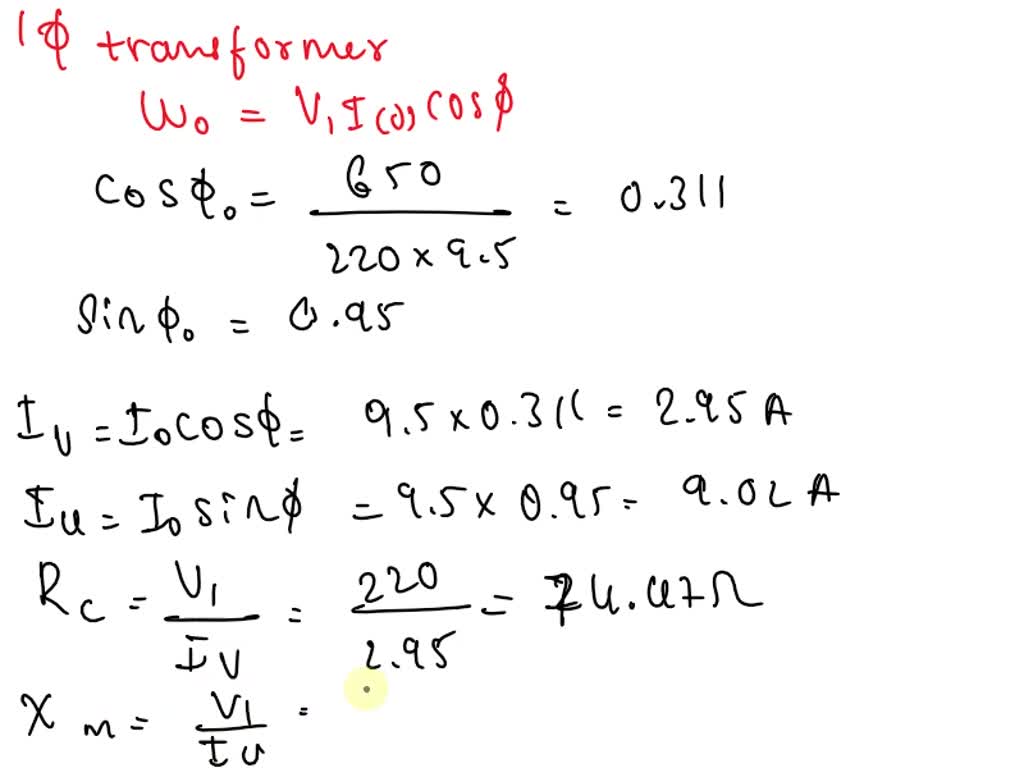 1ϕ transformer
W₀ = V₁ I(0) cosϕ
cosϕ₀ = 650 / 220 × 9.5 = 0.311
sinϕ₀ = 0.95
I_v = I₀ cosϕ = 9.5 × 0.311 = 2.95 A
I_u = I₀ sinϕ = 9.5 × 0.95 = 9.02 A
R_c = V₁ / I_v = 220 / 2.95 = 74.47 Ω
X_m = V₁ / I_u =